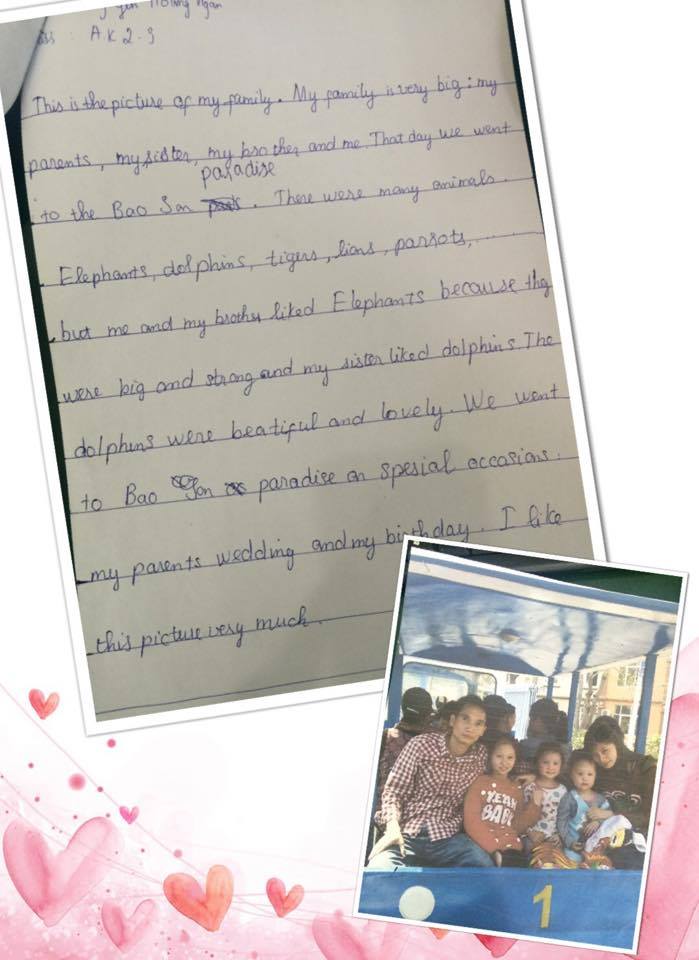 Ngan
AK2-3
This is the picture of my family. My family is very big: my
parents, my sister, my brother and me. That day we went
paradise
to the Bao Son . There were many animals.
Elephants, dolphins, tigers, lions, parrots,......
but me and my brother liked Elephants because thy
were big and strong and my sister liked dolphins. The
dolphins were beatiful and lovely. We went
to Bao Son paradise on spesial occasions.
my parents wedding and my birthday. I like
this picture very much.
1